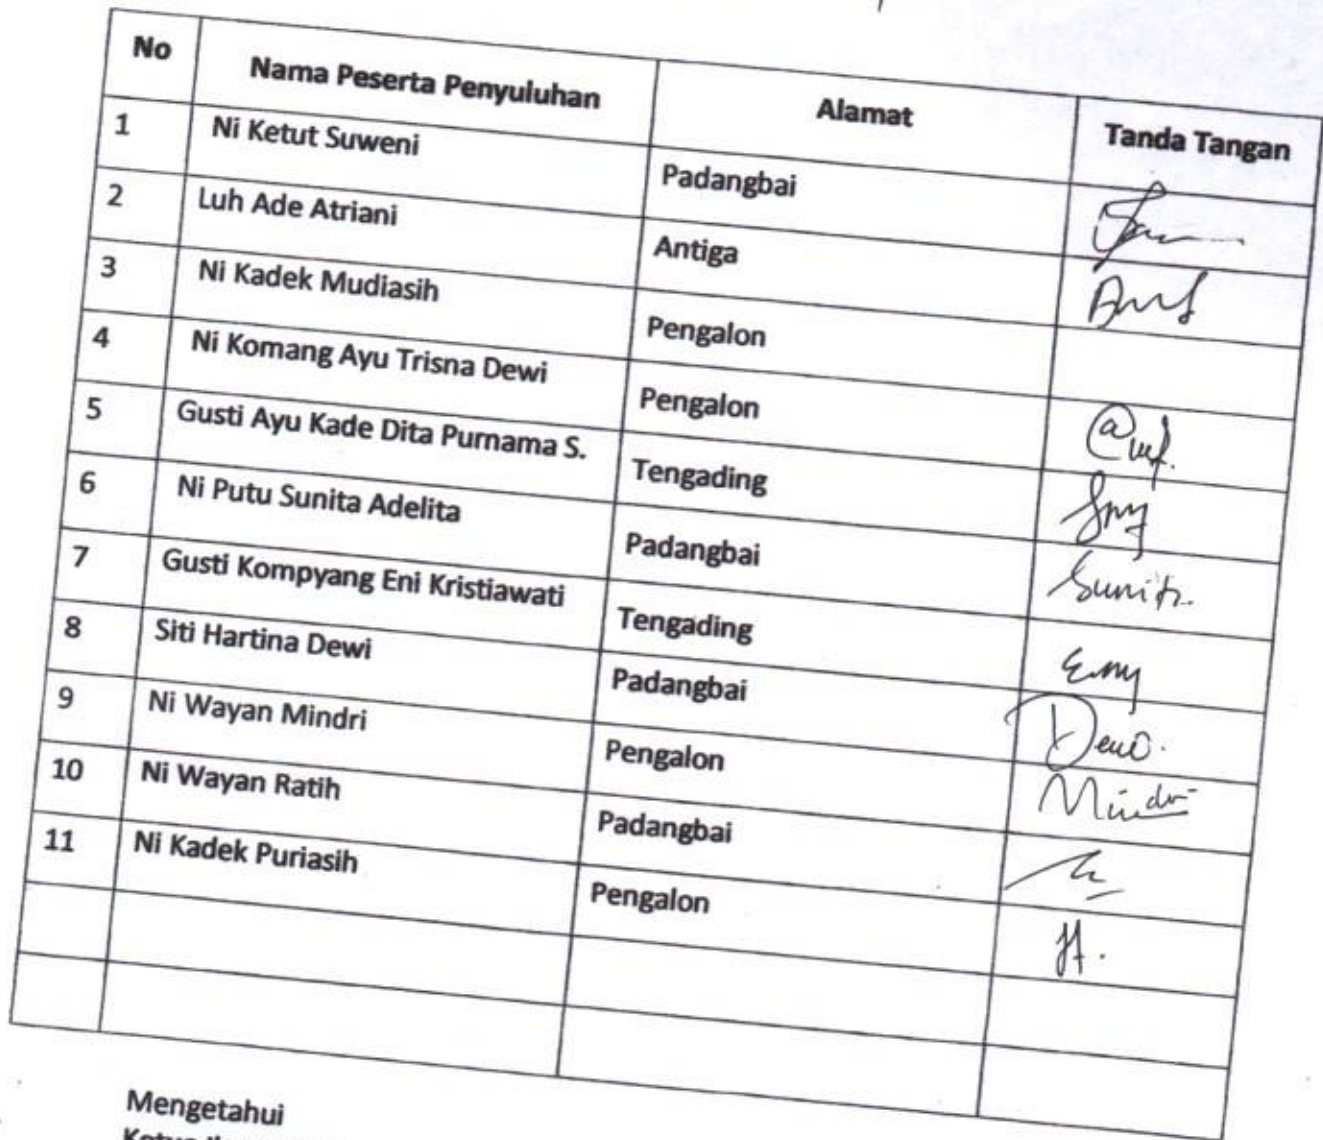 No Nama Peserta Penyuluhan Alamat Tanda Tangan
1 Ni Ketut Suweni Padangbai
2 Luh Ade Atriani Antiga
3 Ni Kadek Mudiasih Pengalon
4 Ni Komang Ayu Trisna Dewi Pengalon
5 Gusti Ayu Kade Dita Purnama S. Tengading
6 Ni Putu Sunita Adelita Padangbai
7 Gusti Kompyang Eni Kristiawati Tengading
8 Siti Hartina Dewi Padangbai
9 Ni Wayan Mindri Pengalon Mindri
10 Ni Wayan Ratih Padangbai
11 Ni Kadek Puriasih Pengalon
Mengetahui